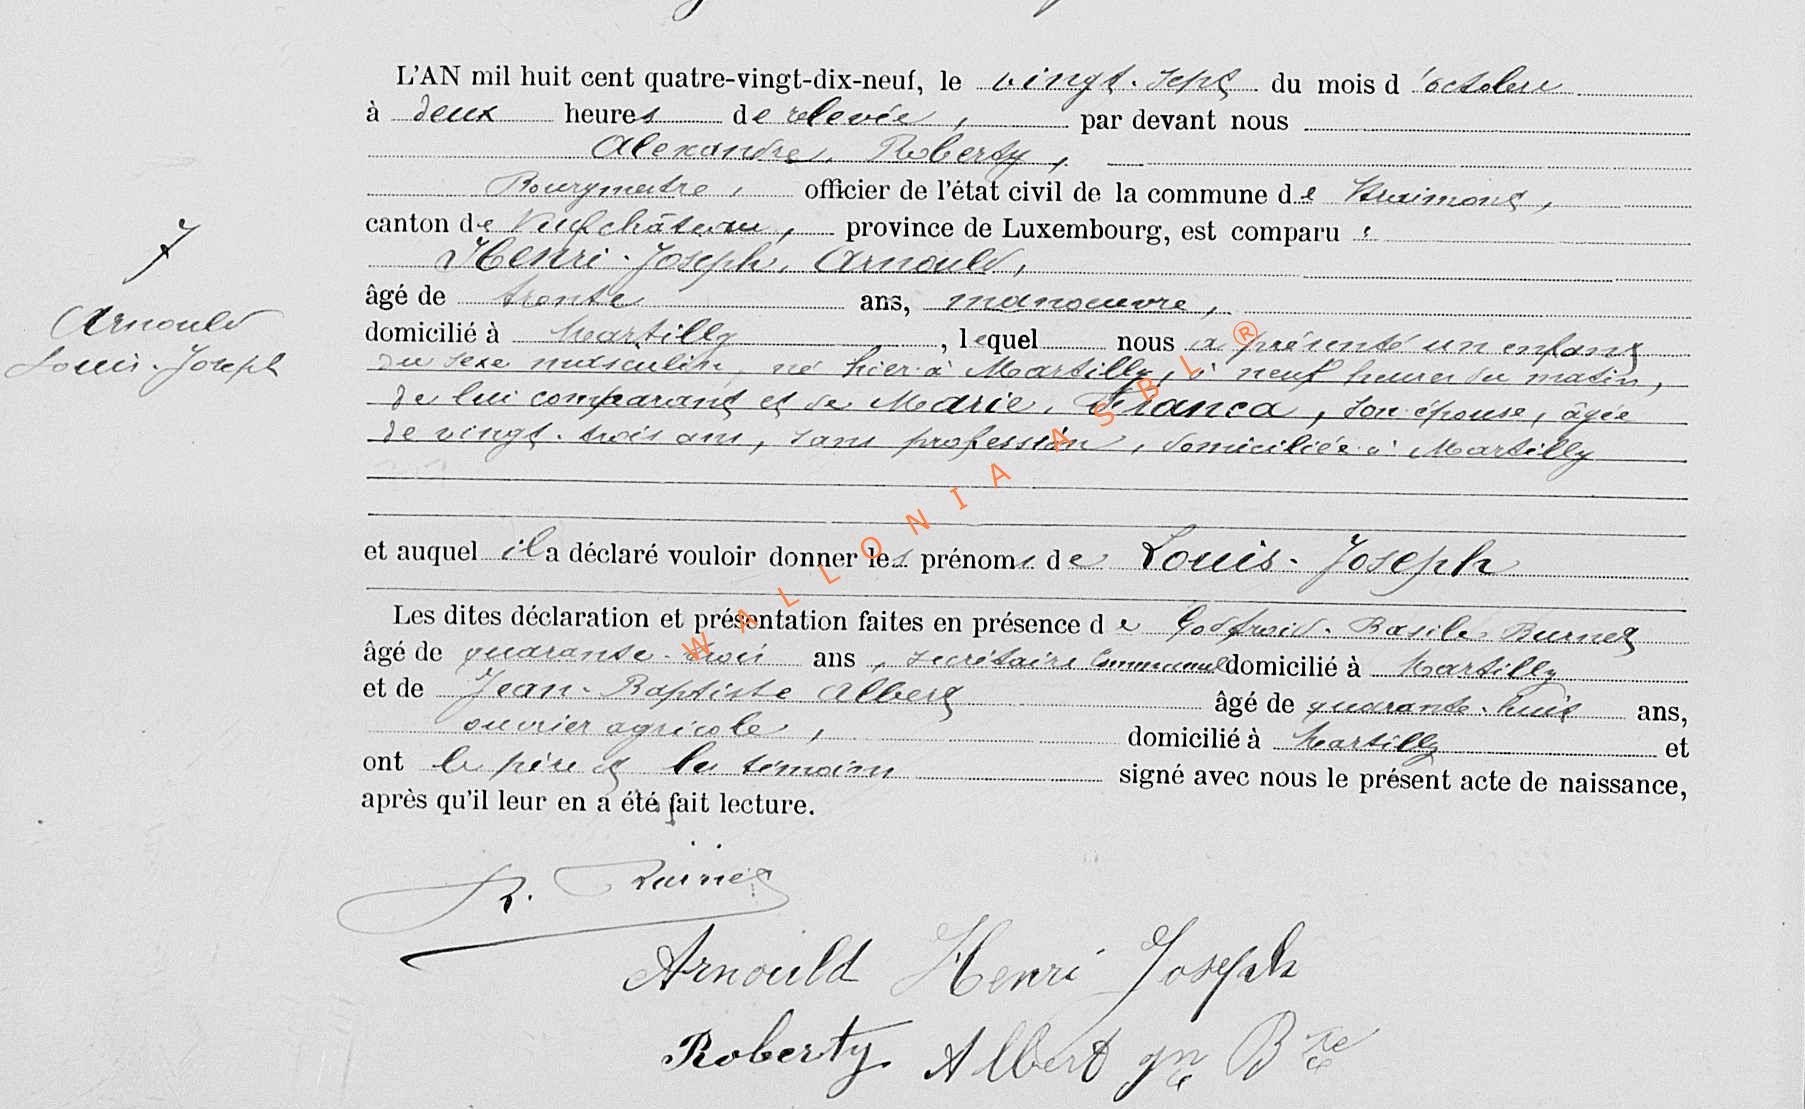 L'AN mil huit cent quatre-vingt-dix-neuf, le vingt-sept du mois d'octobre
à deux heures de relevée, par devant nous
Alexandre, Roberty,
Bourgmestre, officier de l'état civil de la commune de Straimont,
canton de Neufchâteau, province de Luxembourg, est comparu :
Henri-Joseph, Arnould,
âgé de trente ans, manoeuvre,
Arnould
Louis-Joseph
domicilié à Martilly, lequel nous a présenté un enfant
du sexe masculin, né hier à Martilly, à neuf heures du matin,
de lui comparant et de Marie, Franca, son épouse, âgée
de vingt-trois ans, sans profession, domiciliée à Martilly
et auquel il a déclaré vouloir donner les prénoms de Louis-Joseph
Les dites déclaration et présentation faites en présence de Godfroid-Basile Burnet
âgé de quarante-trois ans, secrétaire Communal domicilié à Martilly
et de Jean-Baptiste Albert âgé de quarante-huit ans,
ouvrier agricole, domicilié à Martilly et
ont le père et les témoins signé avec nous le présent acte de naissance,
après qu'il leur en a été fait lecture.
Burnet
Arnould Henri Joseph
Roberty Albert Jn Bte
WALLONIA ASBL ®